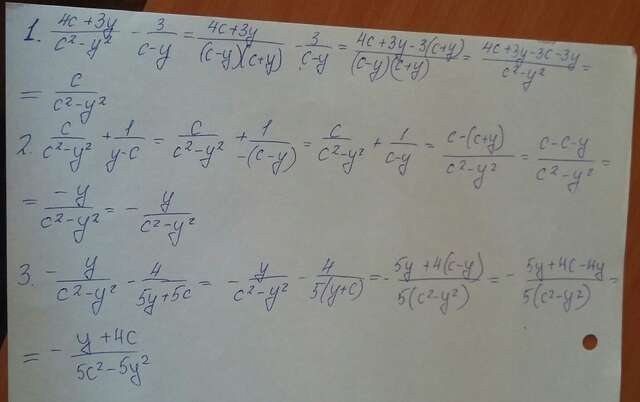 1. (4c+3y)/(c²-y²) - 3/(c-y) = (4c+3y)/((c-y)(c+y)) - 3/(c-y) = (4c+3y-3(c+y))/((c-y)(c+y)) = (4c+3y-3c-3y)/(c²-y²) =
= c/(c²-y²)
2. c/(c²-y²) + 1/(y-c) = c/(c²-y²) + 1/(-(c-y)) = c/(c²-y²) + 1/(c-y) = (c-(c+y))/(c²-y²) = (c-c-y)/(c²-y²) =
= (-y)/(c²-y²) = - y/(c²-y²)
3. - y/(c²-y²) - 4/(5y+5c) = - y/(c²-y²) - 4/(5(y+c)) = - (5y+4(c-y))/(5(c²-y²)) = - (5y+4c-4y)/(5(c²-y²)) =
= - (y+4c)/(5c²-5y²)